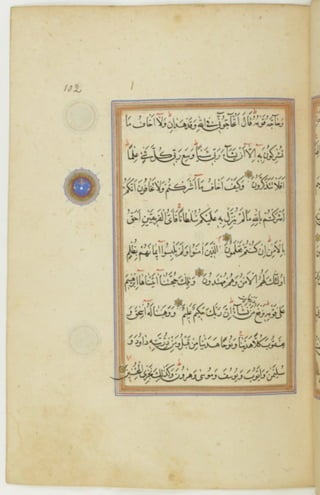 102
وَحَاجَّهُ قَوْمُهُ قَالَ أَتُحَاجُّونِّي فِي اللَّهِ وَقَدْ هَدَانِ وَلَا أَخَافُ مَا
تُشْرِكُونَ بِهِ إِلَّا أَنْ يَشَاءَ رَبِّي شَيْئًا وَسِعَ رَبِّي كُلَّ شَيْءٍ عِلْمًا
أَفَلَا تَتَذَكَّرُونَ وَكَيْفَ أَخَافُ مَا أَشْرَكْتُمْ وَلَا تَخَافُونَ أَنَّكُمْ
أَشْرَكْتُمْ بِاللَّهِ مَا لَمْ يُنَزِّلْ بِهِ عَلَيْكُمْ سُلْطَانًا فَأَيُّ الْفَرِيقَيْنِ أَحَقُّ
بِالْأَمْنِ إِنْ كُنْتُمْ تَعْلَمُونَ الَّذِينَ آمَنُوا وَلَمْ يَلْبِسُوا إِيمَانَهُمْ بِظُلْمٍ
أُولَئِكَ لَهُمُ الْأَمْنُ وَهُمْ مُهْتَدُونَ وَتِلْكَ حُجَّتُنَا آتَيْنَاهَا إِبْرَهِيمَ
عَلَى قَوْمِهِ نَرْفَعُ دَرَجَاتٍ مَنْ نَشَاءُ إِنَّ رَبَّكَ حَكِيمٌ عَلِيمٌ وَوَهَبْنَا لَهُ إِسْحَقَ وَ
يَعْقُوبَ كُلًّا هَدَيْنَا وَنُوحًا هَدَيْنَا مِنْ قَبْلُ وَمِنْ ذُرِّيَّتِهِ دَاوُدَ وَ
سُلَيْمَنَ وَأَيُّوبَ وَيُوسُفَ وَمُوسَى وَهَرُونَ وَكَذَلِكَ نَجْزِي الْمُحْسِنِينَ